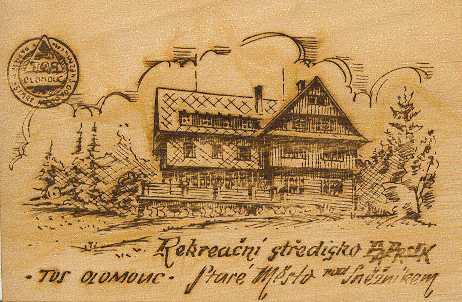 OLOMOUC
Rekreační středisko
- TOS OLOMOUC - Staré Město pod Sněžníkem